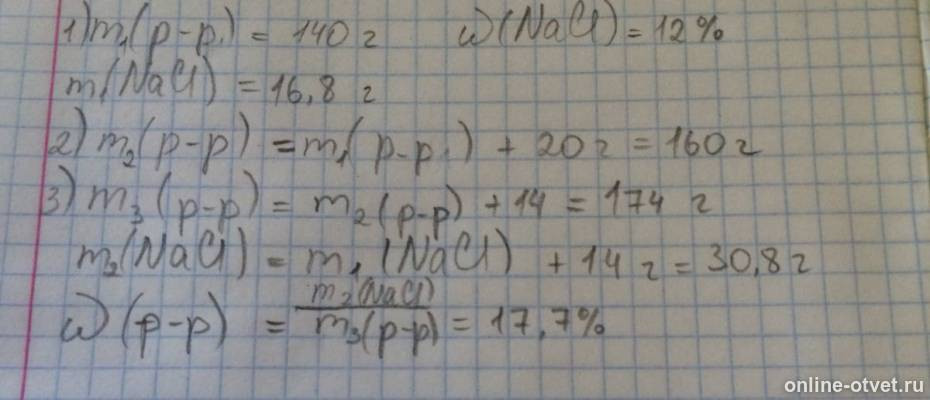 1) m₁(р-р) = 140 г ω(NaCl) = 12%
m₁(NaCl) = 16,8 г
2) m₂(р-р) = m₁(р-р) + 20 г = 160 г
3) m₃(р-р) = m₂(р-р) + 14 = 174 г
m₂(NaCl) = m₁(NaCl) + 14 г = 30,8 г
m₂(NaCl)
ω(р-р) = m₃(р-р) = 17,7%
online-otvet.ru